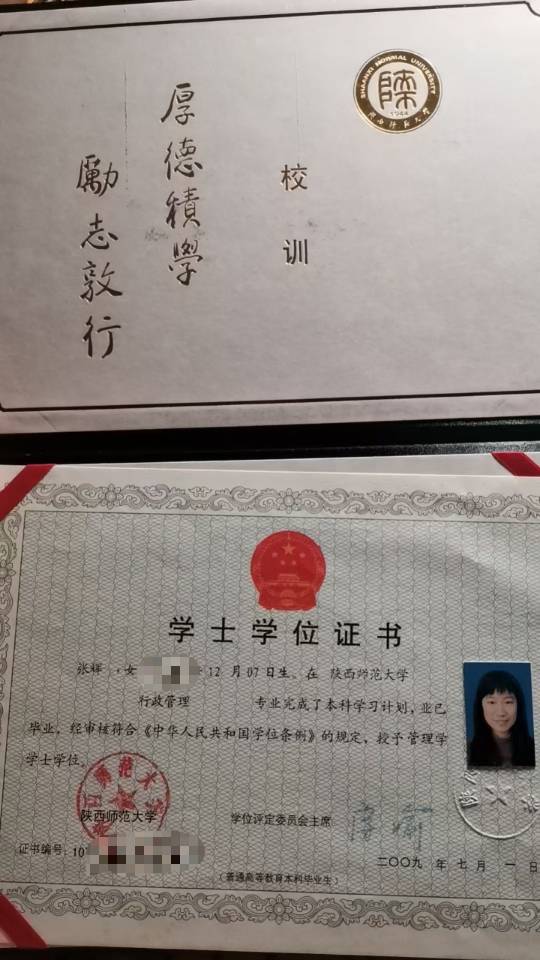 SHAANXI NORMAL UNIVERSITY
陕
1944
陕西师范大学
校训
厚德積學
勵志敦行
学士学位证书
张辉,女 12月07日生。在 陕西师范大学
行政管理 专业完成了本科学习计划,业已
毕业,经审核符合《中华人民共和国学位条例》的规定,授予管理学
学士学位。
陕西师范大学 学位评定委员会主席
证书编号:10 二〇〇九年七月一日
(普通高等教育本科毕业生)